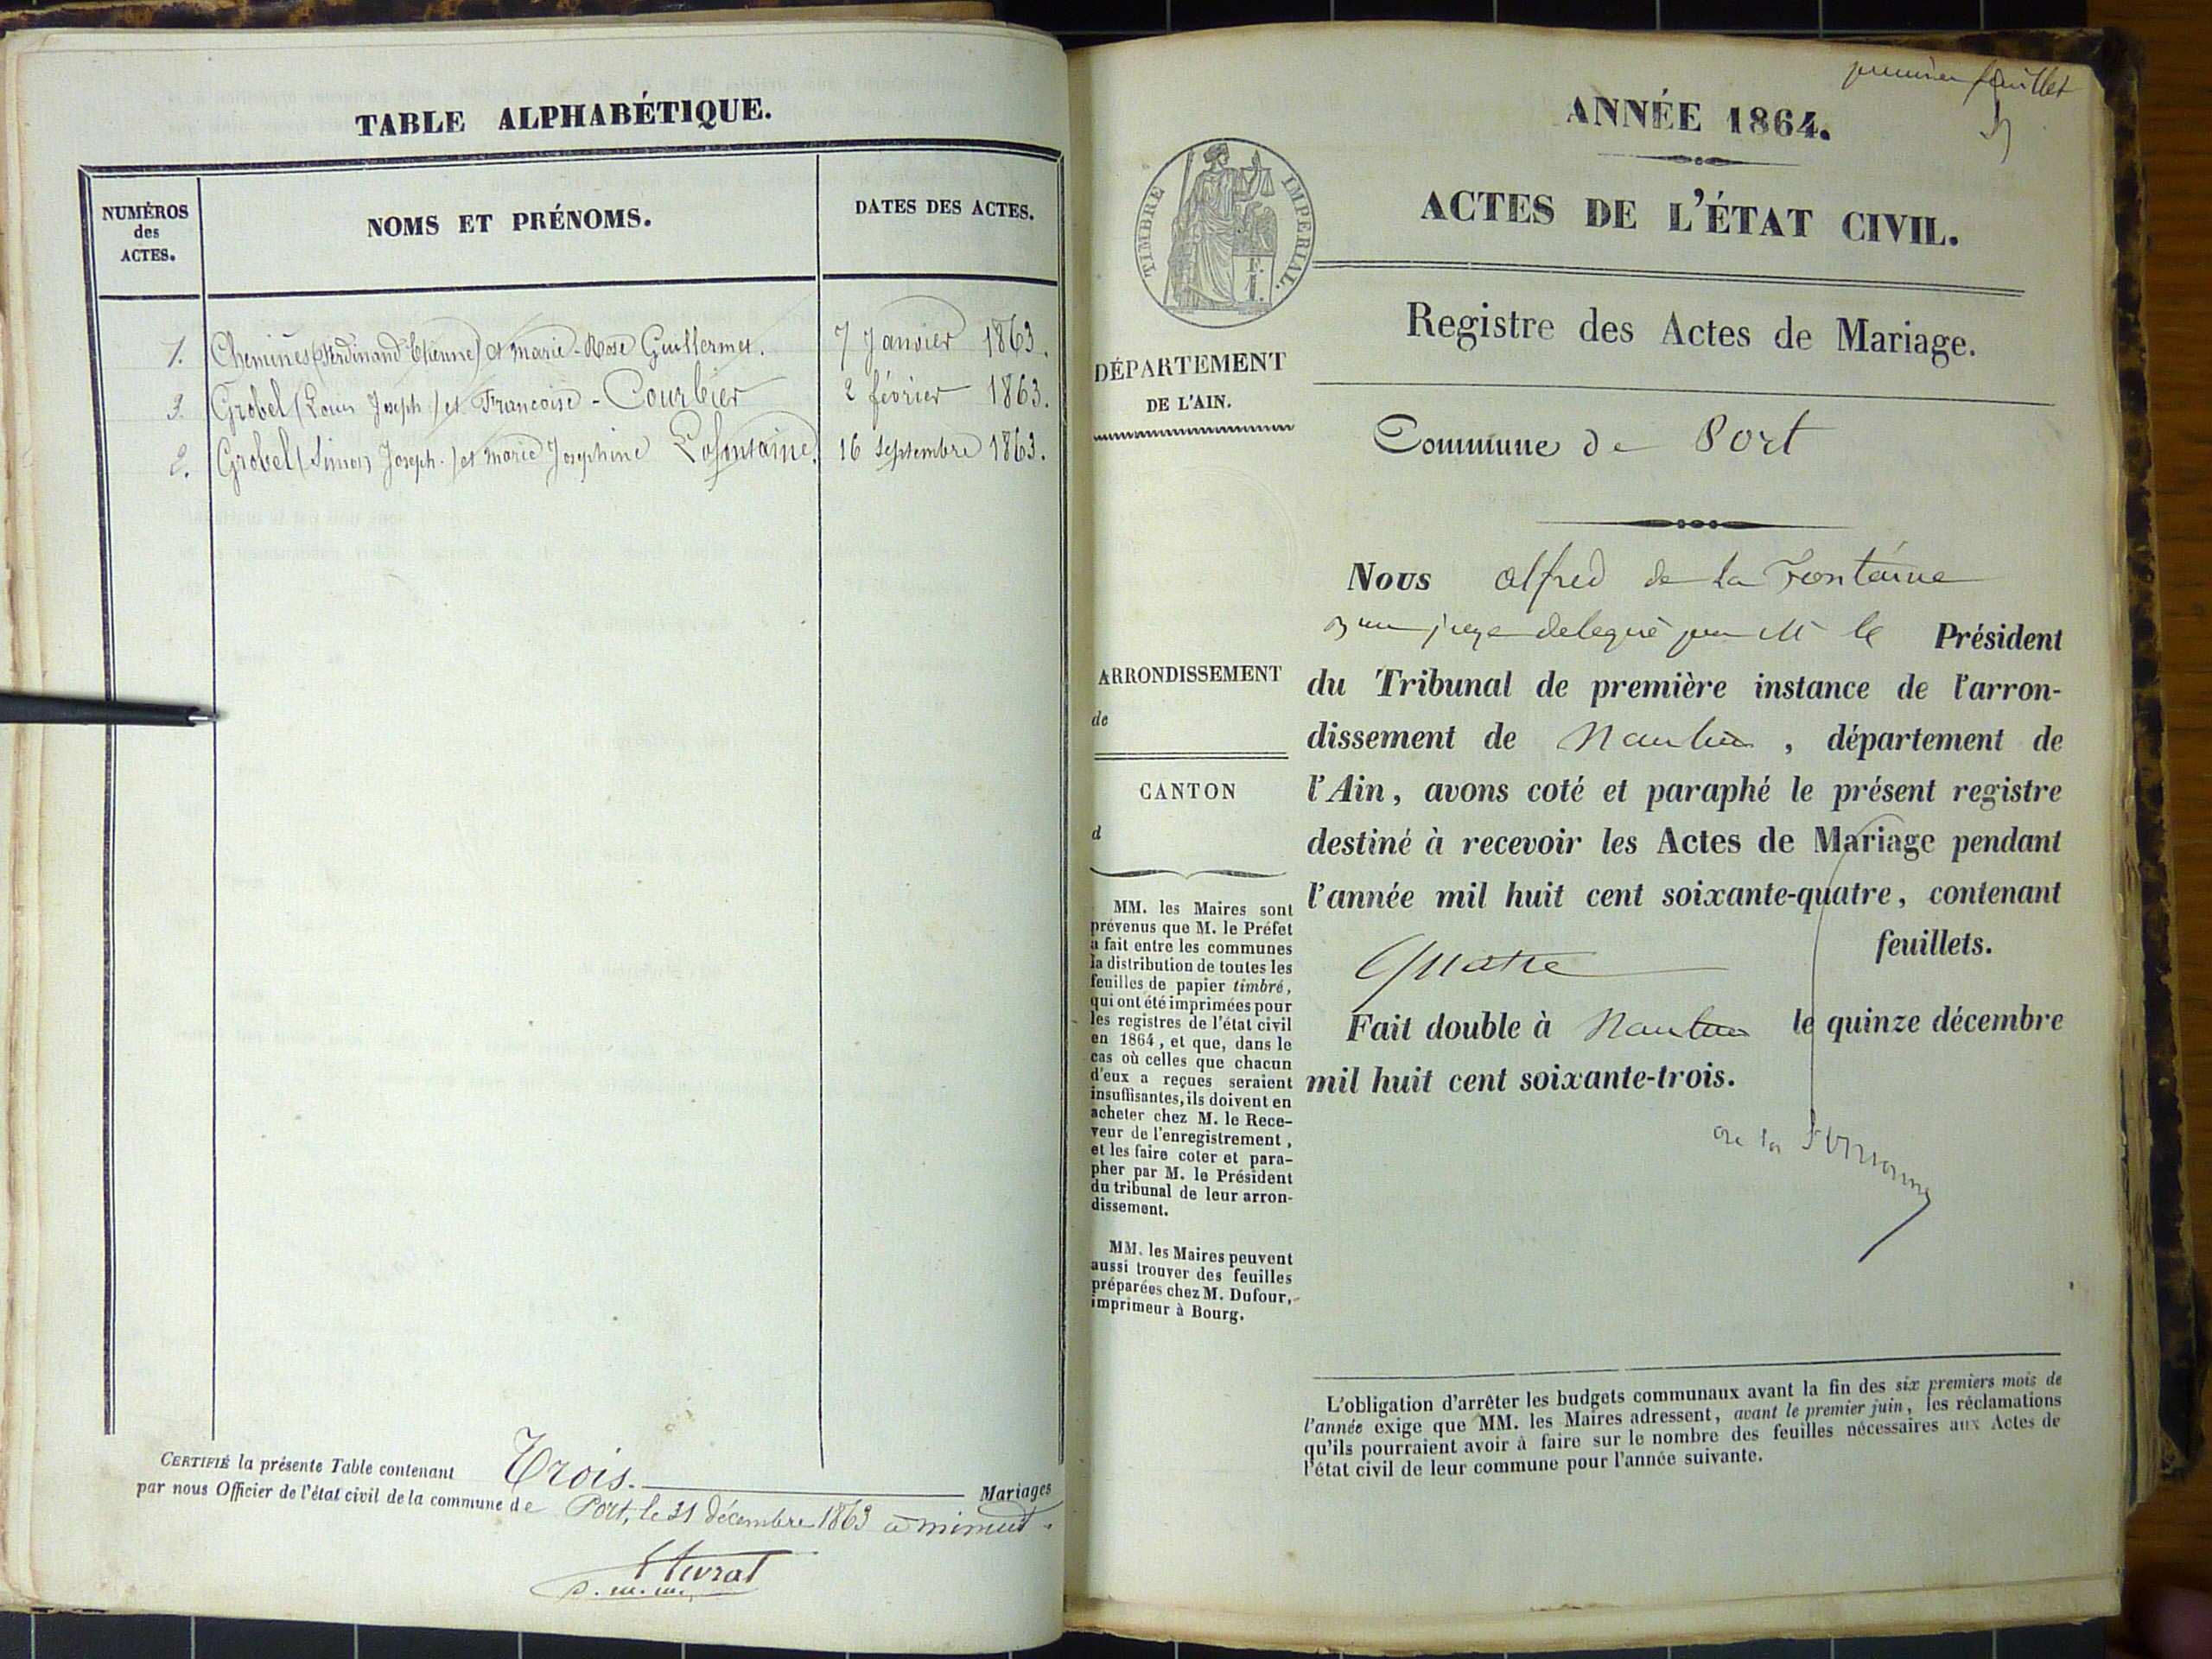 TABLE ALPHABÉTIQUE.
NUMÉROS
des
ACTES.
NOMS ET PRÉNOMS.
DATES DES ACTES.
1. Chemines (Ferdinand Etienne) et marie-Rose Guillermet. 7 Janvier 1863.
3. Grobel (Louis Joseph) et Francoise - Courbier 2 février 1863.
2. Grobel (Simon Joseph.) et marie Josephine Lafontaine. 16 Septembre 1863.
CERTIFIÉ la présente Table contenant Trois. Mariages
par nous Officier de l'état civil de la commune de Port, le 31 décembre 1863 à minuit.
premier feuillet
ANNÉE 1864.
TIMBRE IMPERIAL.
ACTES DE L'ÉTAT CIVIL.
Registre des Actes de Mariage.
DÉPARTEMENT
DE L'AIN.
Commune de Port
ARRONDISSEMENT
de
CANTON
d
MM. les Maires sont
prévenus que M. le Préfet
a fait entre les communes
la distribution de toutes les
feuilles de papier timbré,
qui ont été imprimées pour
les registres de l'état civil
en 1864, et que, dans le
cas où celles que chacun
d'eux a reçues seraient
insuffisantes, ils doivent en
acheter chez M. le Rece-
veur de l'enregistrement,
et les faire coter et para-
pher par M. le Président
du tribunal de leur arron-
dissement.
MM. les Maires peuvent
aussi trouver des feuilles
préparées chez M. Dufour,
imprimeur à Bourg.
Nous alfred de la Fontaine
juge delegué par M le Président
du Tribunal de première instance de l'arron-
dissement de Nantua, département de
l'Ain, avons coté et paraphé le présent registre
destiné à recevoir les Actes de Mariage pendant
l'année mil huit cent soixante-quatre, contenant
Quatre feuillets.
Fait double à Nantua le quinze décembre
mil huit cent soixante-trois.
de la Fontaine
L'obligation d'arrêter les budgets communaux avant la fin des six premiers mois de
l'année exige que MM. les Maires adressent, avant le premier juin, les réclamations
qu'ils pourraient avoir à faire sur le nombre des feuilles nécessaires aux Actes de
l'état civil de leur commune pour l'année suivante.